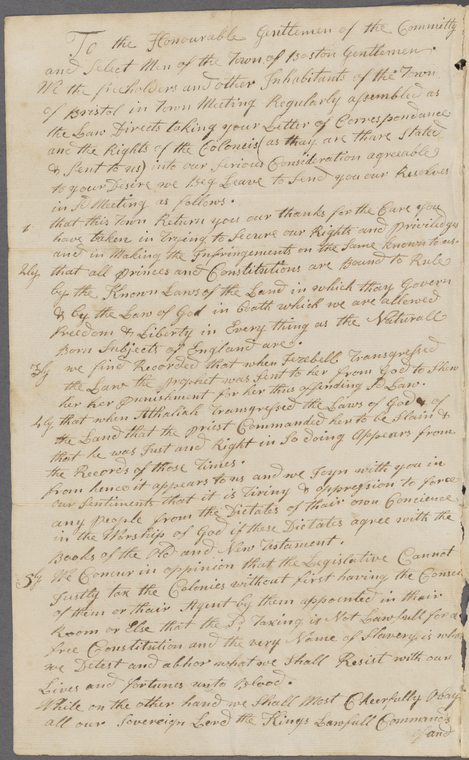 To the Honourable Gentlemen of the Committy
and Select Men of the Town of Boston Gentlemen.
We the freeholders and other Inhabitants of the Town
of Bristol in Town Meeting Regularly assembled as
the Law Directs taking your Letter of Correspondance
and the Rights of the Colonies (as thay are thare Stated
& Sent to us) into our serious Consideration agreeable
to your Desire we Beg Leave to Send you our Resolves
in Sd Meeting as follows.
1 that this Town Return you our thanks for the Care you
have taken in Trying to Secure our Rights and Privilidges
and in Making the Infringements on the Same known to us.
2ly that all princes and Constitutions are Bound to Rule
by the Known Laws of the Land in which thay Govern
& by the Law of God in both which we are allowed
freedom & Liberty in Every thing as the Naturall
Born Subjects of England are.
3ly we find Recorded that when Jezebell Transgressed
the Law the Prophet was sent to her from God to Shew
her her punishment for her thus offending Sd Law.
4ly that when Athaliah Transgressed the Laws of God & of
the Land that the priest Commanded her to be Slain &
that he was Just and Right in So doing Appears from
the Records of those Times.
from hence it appears to us and we Joyn with you in
our Sentiments that it is Tiriny & oppression to force
any people from the Dictates of their own Concience
in the Worship of God if these Dictates agree with the
Books of the Old and New Testament.
5ly We Concur in oppinion that the Legislative Cannot
Justly tax the Colonies without first having the Consent
of them or thair Agent by them appointed in thair
Room or Else that the Sd Taxing is Not Lawfull for a
free Constitution and the very Name of Slavery is what
we Detest and abhor what we Shall Resist with our
Lives and fortunes unto Blood.
While on the other hand we Shall Most Cheerfully Obay
all our Sovereign Lord the Kings Lawfull Commands
and